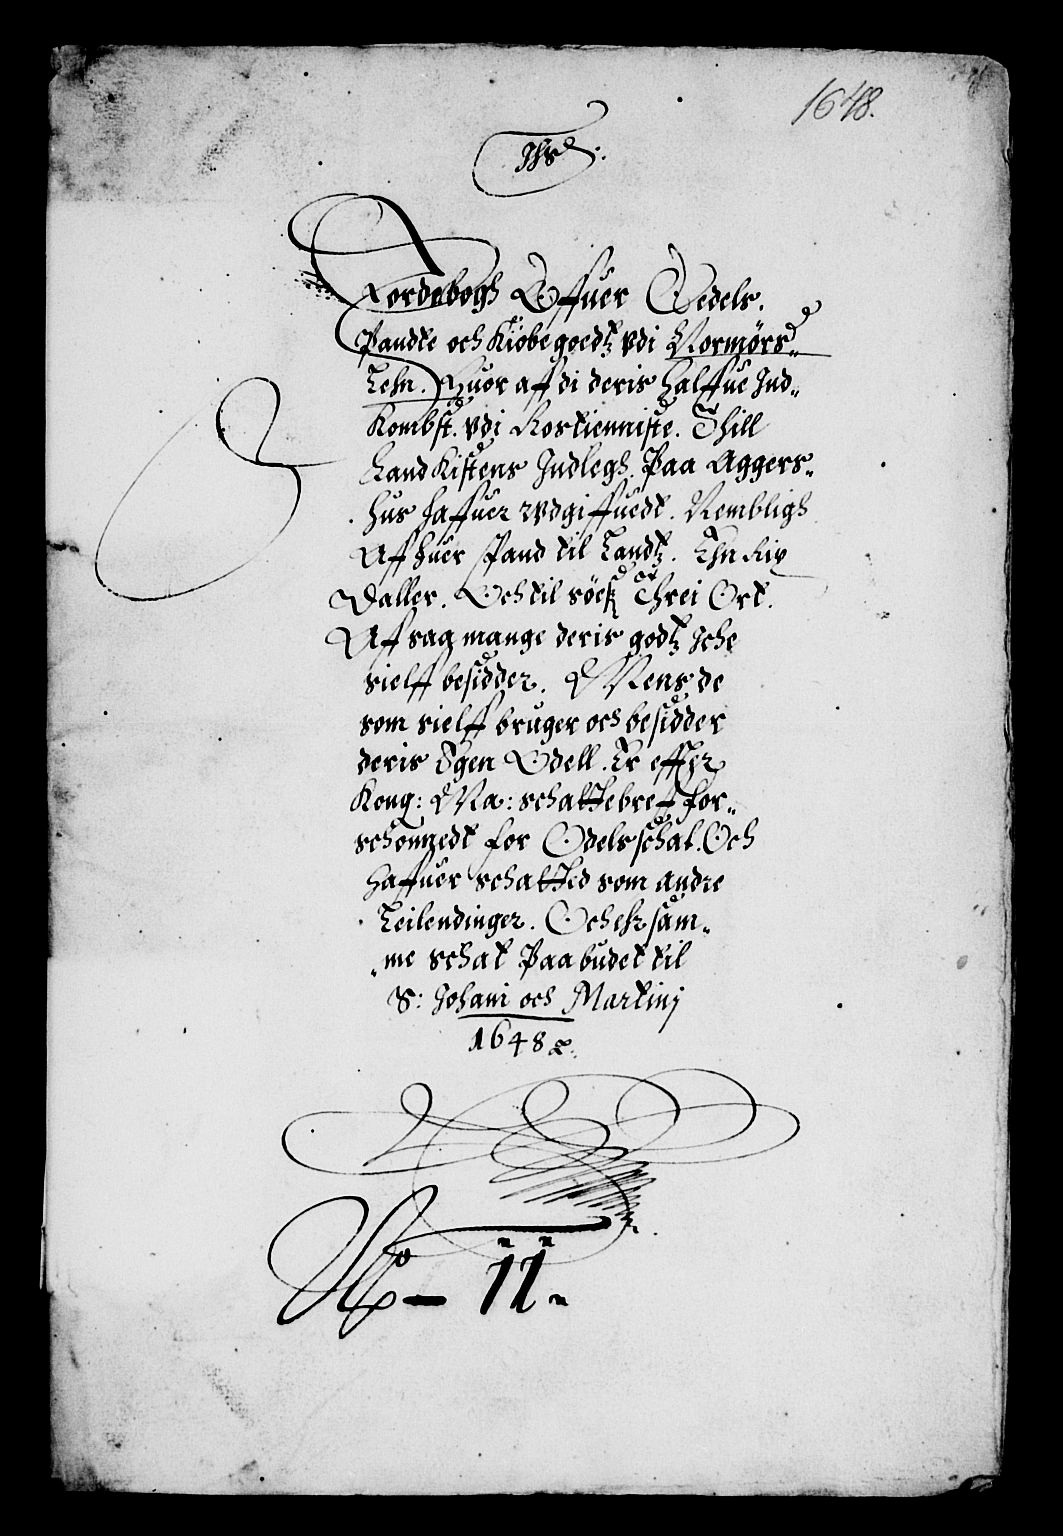 1648.
Ihs.
Jordebogh Offuer Oedels.
Pandte och Kiöbegoedtz vdi Normörs„
Lehn. Huor aff di deris halffue Ind„
Kombst. vdi Rostienniste. Thill
Land Kistens Indlegh. Paa Aggers„
hus haffuer vdgiffuedt. Nembligh
Aff huer spand til Landtz. Ehn Rix
Daller. Och til söeß Threi Ort.
Aff saa mange deris godtz Iche
sielff besidder. Mens de
som sielff bruger och besidder
deris Egen Odell. Er effter
Kong: Ma: schattebreff for„
schonnedt for Odelsschat. Och
haffuer schatted som andre
Leilendinger. Och er sam„
„me schat Paabudet til
S: Johani och Martinj
1648 &.
No – 11 „